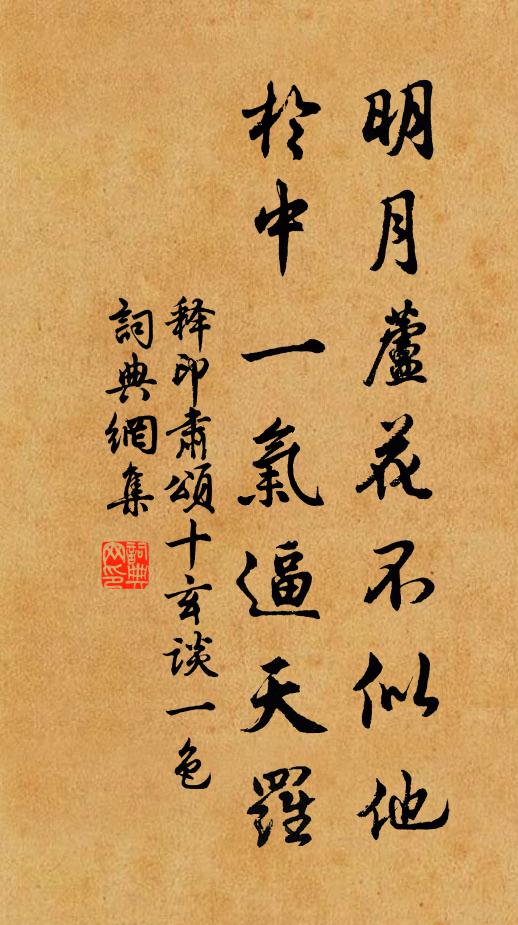 明月蘆花不似他
於中一氣逼天羅
释印肅頌十玄談一色
詞典網集
詞典网印